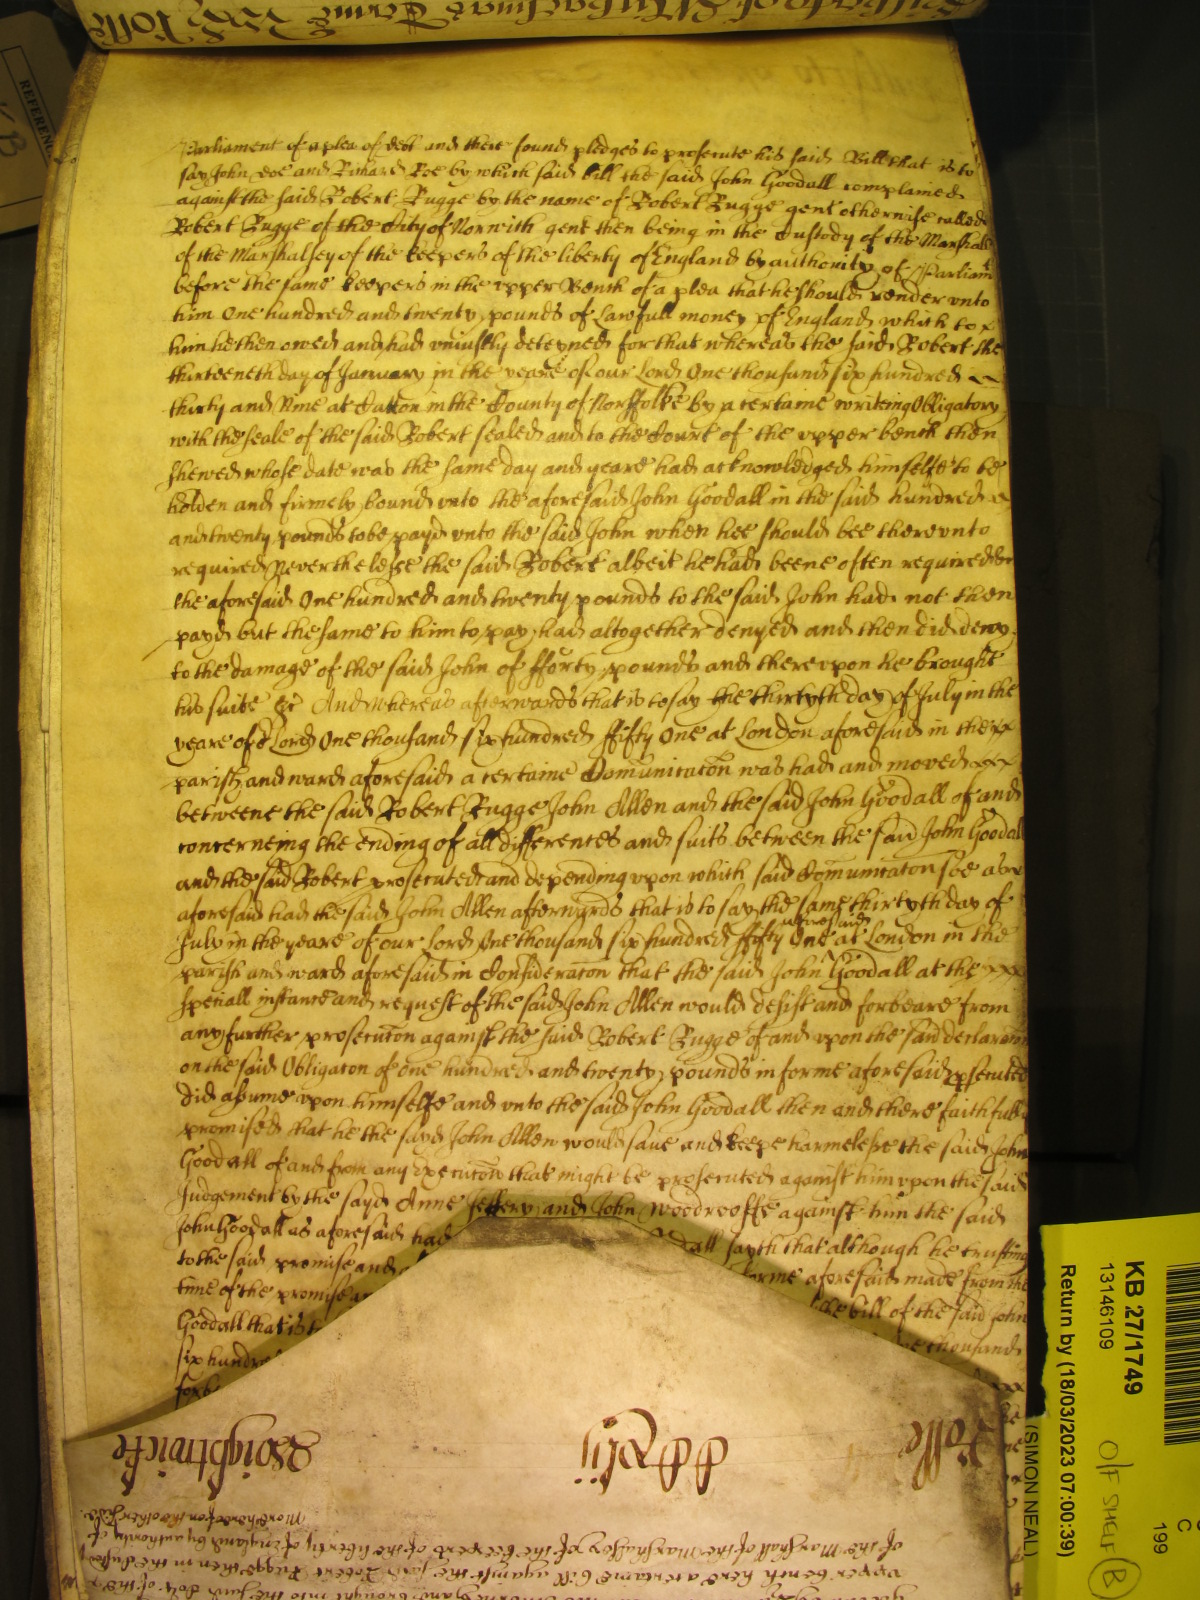 Parliament of a plea of debt and there found pledges to prosecute his said Bill that is to
say John Doe and Richard Roe by which said bill the said John Goodall complained
against the said Robert Rugge by the name of Robert Rugge gent otherwise called
Robert Rugge of the Citty of Norwich gent then being in the Custody of the Marshall
of the Marshalsey of the keepers of the liberty of England by authority of Parliamt
before the same keepers in the upper Bench of a plea that he should render unto
him One hundred and twenty pounds of Lawfull money of England which to
him he then owed and had uniustly deteyned for that whereas the said Robert the
thirteeneth day of January in the yeare of our Lord One thousand six hundred
thirty and Nine at in the County of Norffolke by a certaine writeing Obligatory
with the seale of the said Robert sealed and to the Court of the upper bench then
shewed whose date was the same day and yeare had acknowledged himselfe to be
holden and firmely bound unto the aforesaid John Goodall in the said hundred
and twenty pounds to be payd unto the said John when hee should bee thereunto
required Neverthelesse the said Robert albeit he had beene often required
the aforesaid One hundred and twenty pounds to the said John had not then
payd but the same to him to pay had altogether denyed and then did deny
to the damage of the said John of fforty pounds and thereupon he brought
his suite &c And Whereas afterwards that is to say the thirtyth day of July in the
yeare of or Lord One thousand six hundred ffifty One at London aforesaid in the
parish and ward aforesaid a certaine Comunicacon was had and moved
betweene the said Robert Rugge John Allen and the said John Goodall of and
concerneing the ending of all differences and suits between the said John Goodall
and the said Robert prosecuted and depending upon which said Comunicacon soe as
aforesaid had the said John Allen afterwards that is to say the same thirtyth day of
July in the yeare of our Lord One thousand six hundred ffifty One aforesaid at London in the
parish and ward aforesaid in Consideracon that the said John Goodall at the
speciall instance and request of the said John Allen would desist and forbeare from
any further prosecucon against the said Robert Rugge of and upon the said declaracon
on the said Obligacon of one hundred and twenty pounds in forme aforesaid psecuted
did assume upon himselfe and unto the said John Goodall then and there faithfully
promised that he the sayd John Allen would save and keepe harmelesse the said John
Goodall of and from any Execucon that might be prosecuted against him upon the said
Judgement by the sayd Anne Jeffery and John Woodrooffe against him the said
John Goodall as aforesaid had dall sayth that although he trusting
to the said promise and forme aforesaid made from the
time of the promise the bill of the said John
Goodall that is to thousand
six hundred
Rolle
Wightwicke
of the Marshall of the Marshalsey of the keepers of the liberty of England by authority of
More hereof on the other side
KB 27/1749
13146109
Return by (18/03/2023 07:00:39)
(SIMON NEAL)
O/F SHELF B
C
199
REFERENC